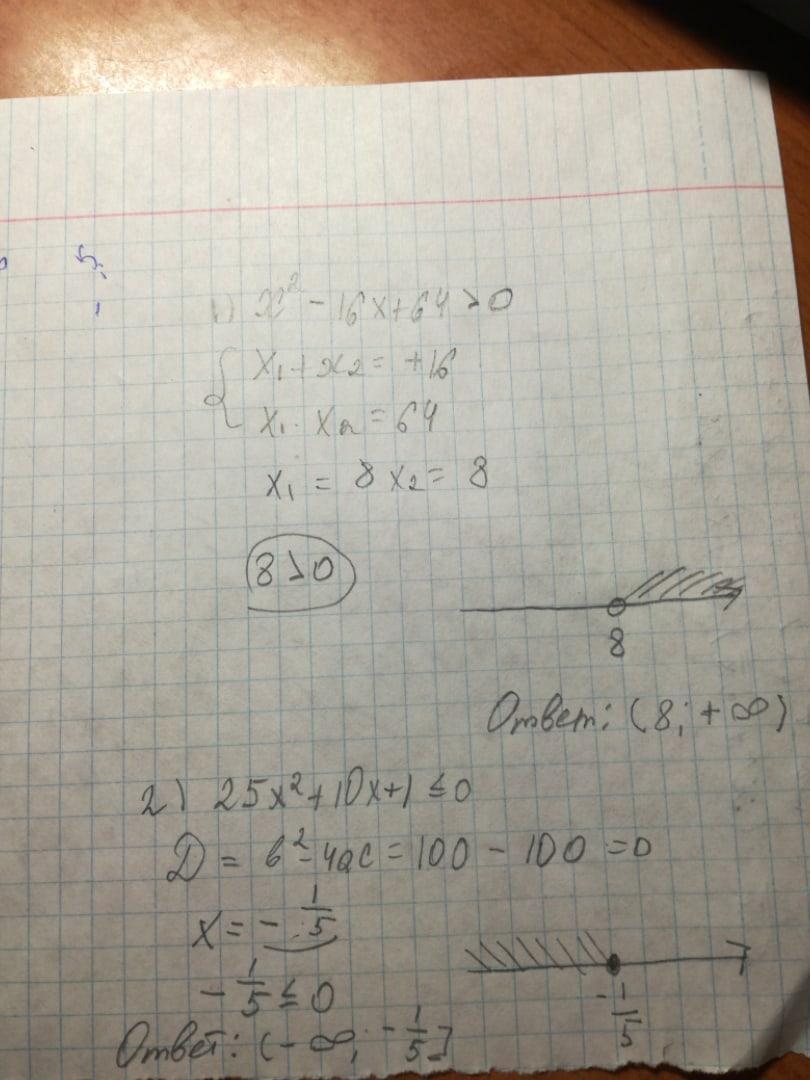 1) x² - 16x + 64 > 0
{ x₁ + x₂ = +16
x₁ · x₂ = 64
x₁ = 8 x₂ = 8
8 > 0
8
Ответ: (8; +∞)
2) 25x² + 10x + 1 ≤ 0
D = b² - 4ac = 100 - 100 = 0
x = - 1/5
- 1/5 ≤ 0
- 1/5
Ответ: (-∞; - 1/5]